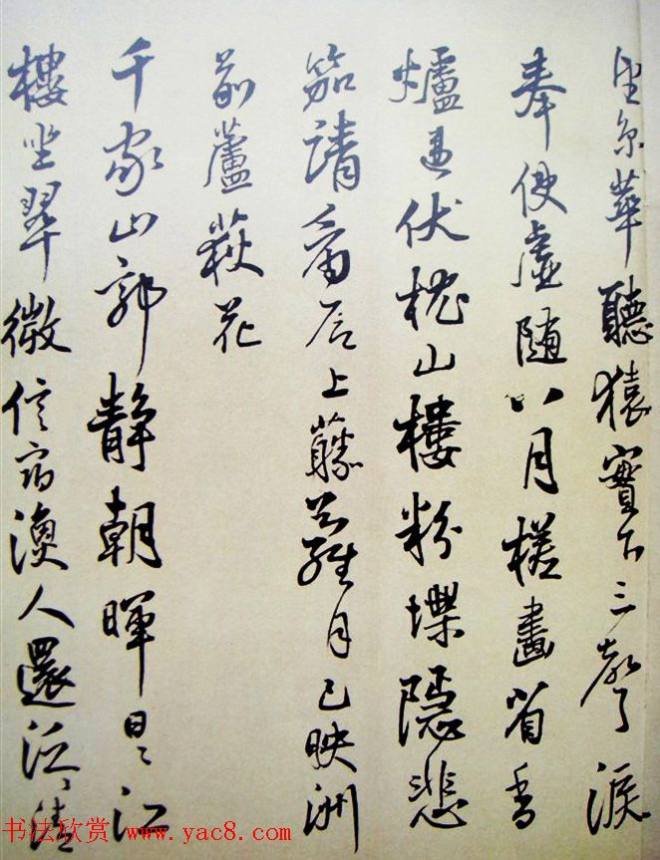 望京華聽猿實下三聲淚
奉使虛隨八月槎畫省香
爐違伏枕山樓粉堞隱悲
笳請看石上藤蘿月已映洲
前蘆荻花
千家山郭靜朝暉日〻江
樓坐翠微信宿漁人還泛〻清
书法欣赏 www.yac8.com